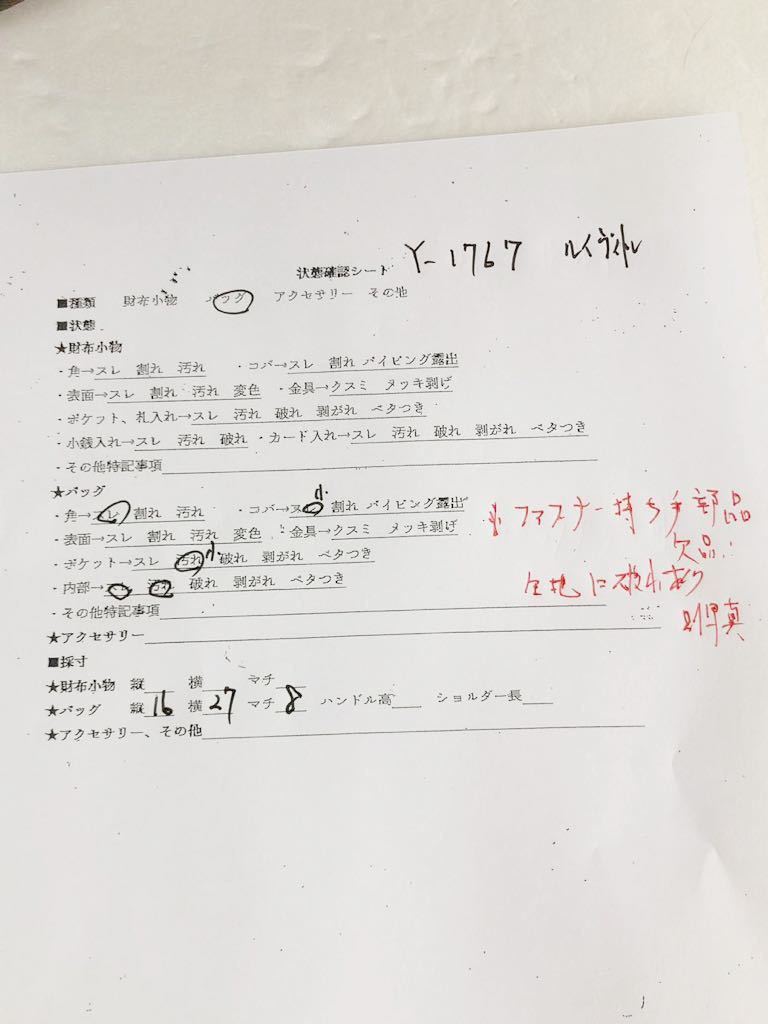 状態確認シート Y-1767 ルイヴィトン
■種類 財布小物 バッグ アクセサリー その他
■状態
★財布小物
・角→スレ 割れ 汚れ ・コバ→スレ 割れ パイピング露出
・表面→スレ 割れ 汚れ 変色 ・金具→クスミ メッキ剥げ
・ポケット、札入れ→スレ 汚れ 破れ 剥がれ ベタつき
・小銭入れ→スレ 汚れ 破れ ・カード入れ→スレ 汚れ 破れ 剥がれ ベタつき
・その他特記事項
★バッグ
・角→スレ 割れ 汚れ ・コバ→スレ 小 割れ パイピング露出
・表面→スレ 割れ 汚れ 変色 ・金具→クスミ メッキ剥げ
・ポケット→スレ 汚れ 小 破れ 剥がれ ベタつき
・内部→スレ 汚れ 破れ 剥がれ ベタつき
・その他特記事項
小 ファスナー持ち手部品
欠品
生地に破れあり
★アクセサリー
■採寸
★財布小物 縦 横 マチ
★バッグ 縦16 横27 マチ8 ハンドル高 ショルダー長
★アクセサリー、その他